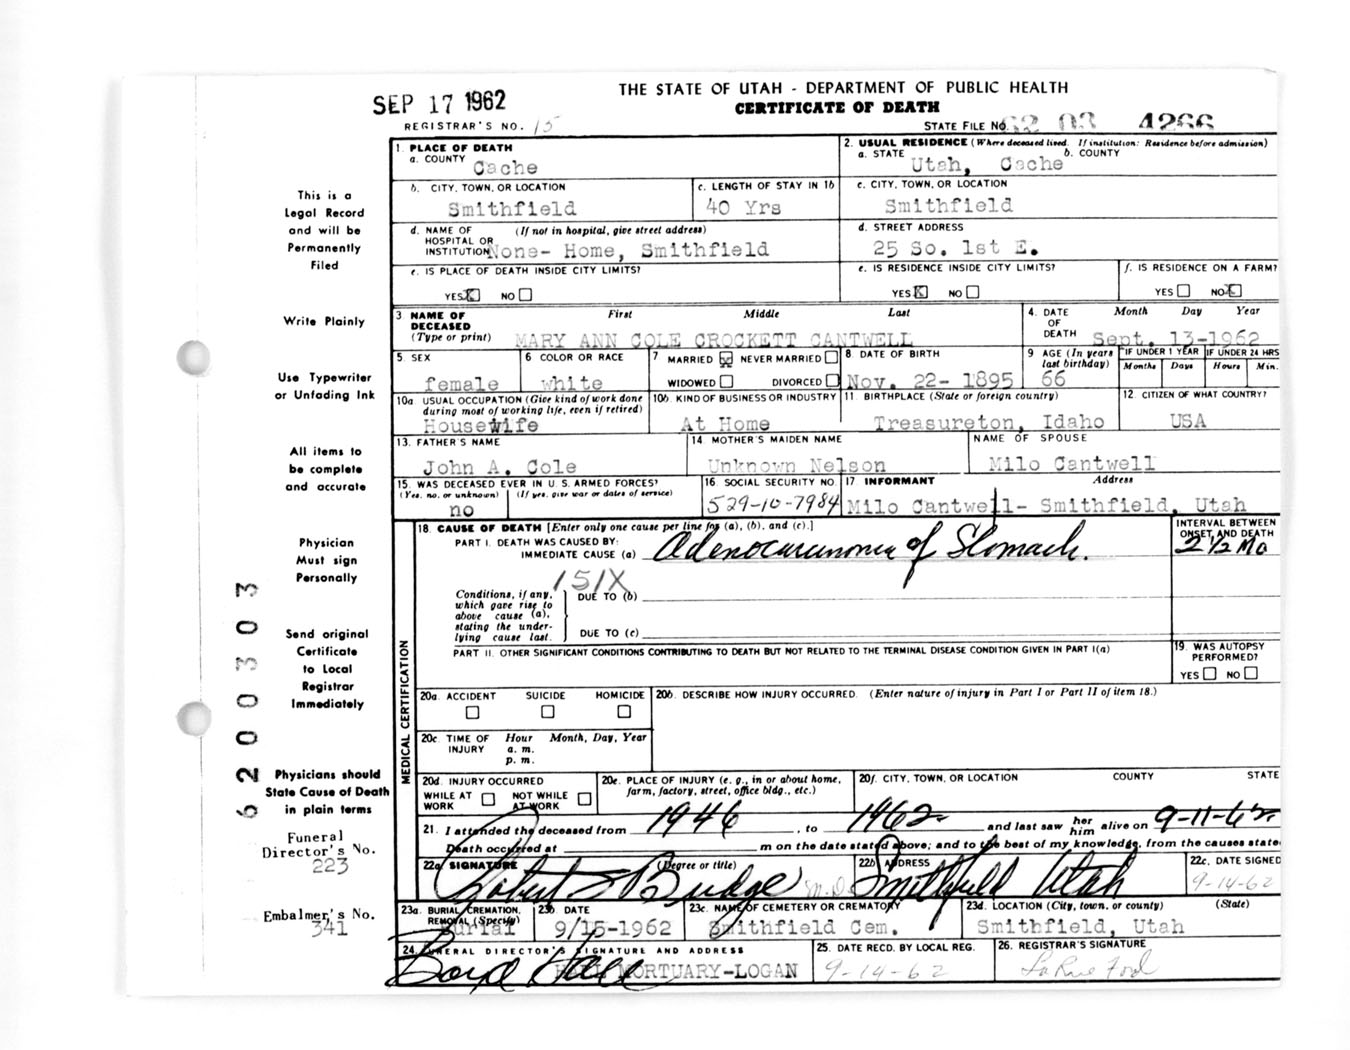 THE STATE OF UTAH - DEPARTMENT OF PUBLIC HEALTH
SEP 17 1962
CERTIFICATE OF DEATH
REGISTRAR'S NO. 15
STATE FILE NO. 62 03 4266
This is a
Legal Record
and will be
Permanently
Filed
Write Plainly
Use Typewriter
or Unfading Ink
All items to
be complete
and accurate
Physician
Must sign
Personally
Send original
Certificate
to Local
Registrar
Immediately
Physicians should
State Cause of Death
in plain terms
Funeral
Director's No.
223
Embalmer's No.
341
6200303
1. PLACE OF DEATH
a. COUNTY
Cache
2. USUAL RESIDENCE (Where deceased lived. If institution: Residence before admission)
a. STATE b. COUNTY
Utah, Cache
b. CITY, TOWN, OR LOCATION
Smithfield
c. LENGTH OF STAY IN 1b
40 Yrs
c. CITY, TOWN, OR LOCATION
Smithfield
d. NAME OF (If not in hospital, give street address)
HOSPITAL OR
INSTITUTION None- Home, Smithfield
d. STREET ADDRESS
25 So. 1st E.
e. IS PLACE OF DEATH INSIDE CITY LIMITS?
YES X NO
e. IS RESIDENCE INSIDE CITY LIMITS?
YES X NO
f. IS RESIDENCE ON A FARM?
YES NO X
3 NAME OF First Middle Last
DECEASED
(Type or print) MARY ANN COLE CROCKETT CANTWELL
4. DATE Month Day Year
OF
DEATH Sept. 13-1962
5 SEX
female
6 COLOR OR RACE
white
7 MARRIED X NEVER MARRIED
WIDOWED DIVORCED
8 DATE OF BIRTH
Nov. 22- 1895
9 AGE (In years
last birthday)
66
IF UNDER 1 YEAR IF UNDER 24 HRS
Months Days Hours Min.
10a. USUAL OCCUPATION (Give kind of work done
during most of working life, even if retired)
Housewife
10b. KIND OF BUSINESS OR INDUSTRY
At Home
11. BIRTHPLACE (State or foreign country)
Treasureton, Idaho
12. CITIZEN OF WHAT COUNTRY?
USA
13. FATHER'S NAME
John A. Cole
14 MOTHER'S MAIDEN NAME
Unknown Nelson
NAME OF SPOUSE
Milo Cantwell
15. WAS DECEASED EVER IN U. S. ARMED FORCES?
(Yes, no, or unknown) (If yes, give war or dates of service)
no
16. SOCIAL SECURITY NO.
529-10-7984
17. INFORMANT Address
Milo Cantwell- Smithfield, Utah
MEDICAL CERTIFICATION
18. CAUSE OF DEATH [Enter only one cause per line for (a), (b), and (c).]
PART I. DEATH WAS CAUSED BY:
IMMEDIATE CAUSE (a) Adenocarcinoma of Stomach.
INTERVAL BETWEEN
ONSET AND DEATH
2 1/2 Mo
151X
Conditions, if any,
which gave rise to
above cause (a),
stating the under-
lying cause last.
DUE TO (b)
DUE TO (c)
PART II. OTHER SIGNIFICANT CONDITIONS CONTRIBUTING TO DEATH BUT NOT RELATED TO THE TERMINAL DISEASE CONDITION GIVEN IN PART I(a)
19. WAS AUTOPSY
PERFORMED?
YES NO
20a. ACCIDENT SUICIDE HOMICIDE
20b. DESCRIBE HOW INJURY OCCURRED. (Enter nature of injury in Part I or Part II of item 18.)
20c. TIME OF Hour Month, Day, Year
INJURY a. m.
p. m.
20d. INJURY OCCURRED
WHILE AT WORK NOT WHILE AT WORK
20e. PLACE OF INJURY (e. g., in or about home,
farm, factory, street, office bldg., etc.)
20f. CITY, TOWN, OR LOCATION COUNTY STATE
21. I attended the deceased from 1946, to 1962 and last saw her him alive on 9-11-62
Death occurred at m on the date stated above; and to the best of my knowledge, from the causes state
22a. SIGNATURE (Degree or title)
Robert S Budge M.D.
22b. ADDRESS
Smithfield Utah
22c. DATE SIGNED
9-14-62
23a. BURIAL, CREMATION,
REMOVAL (Specify)
Burial
23b. DATE
9/15-1962
23c. NAME OF CEMETERY OR CREMATORY
Smithfield Cem.
23d. LOCATION (City, town, or county) (State)
Smithfield, Utah
24. FUNERAL DIRECTOR'S SIGNATURE AND ADDRESS
Boyd Hall
HALL MORTUARY-LOGAN
25. DATE RECD. BY LOCAL REG.
9-14-62
26. REGISTRAR'S SIGNATURE
LaRue Ford